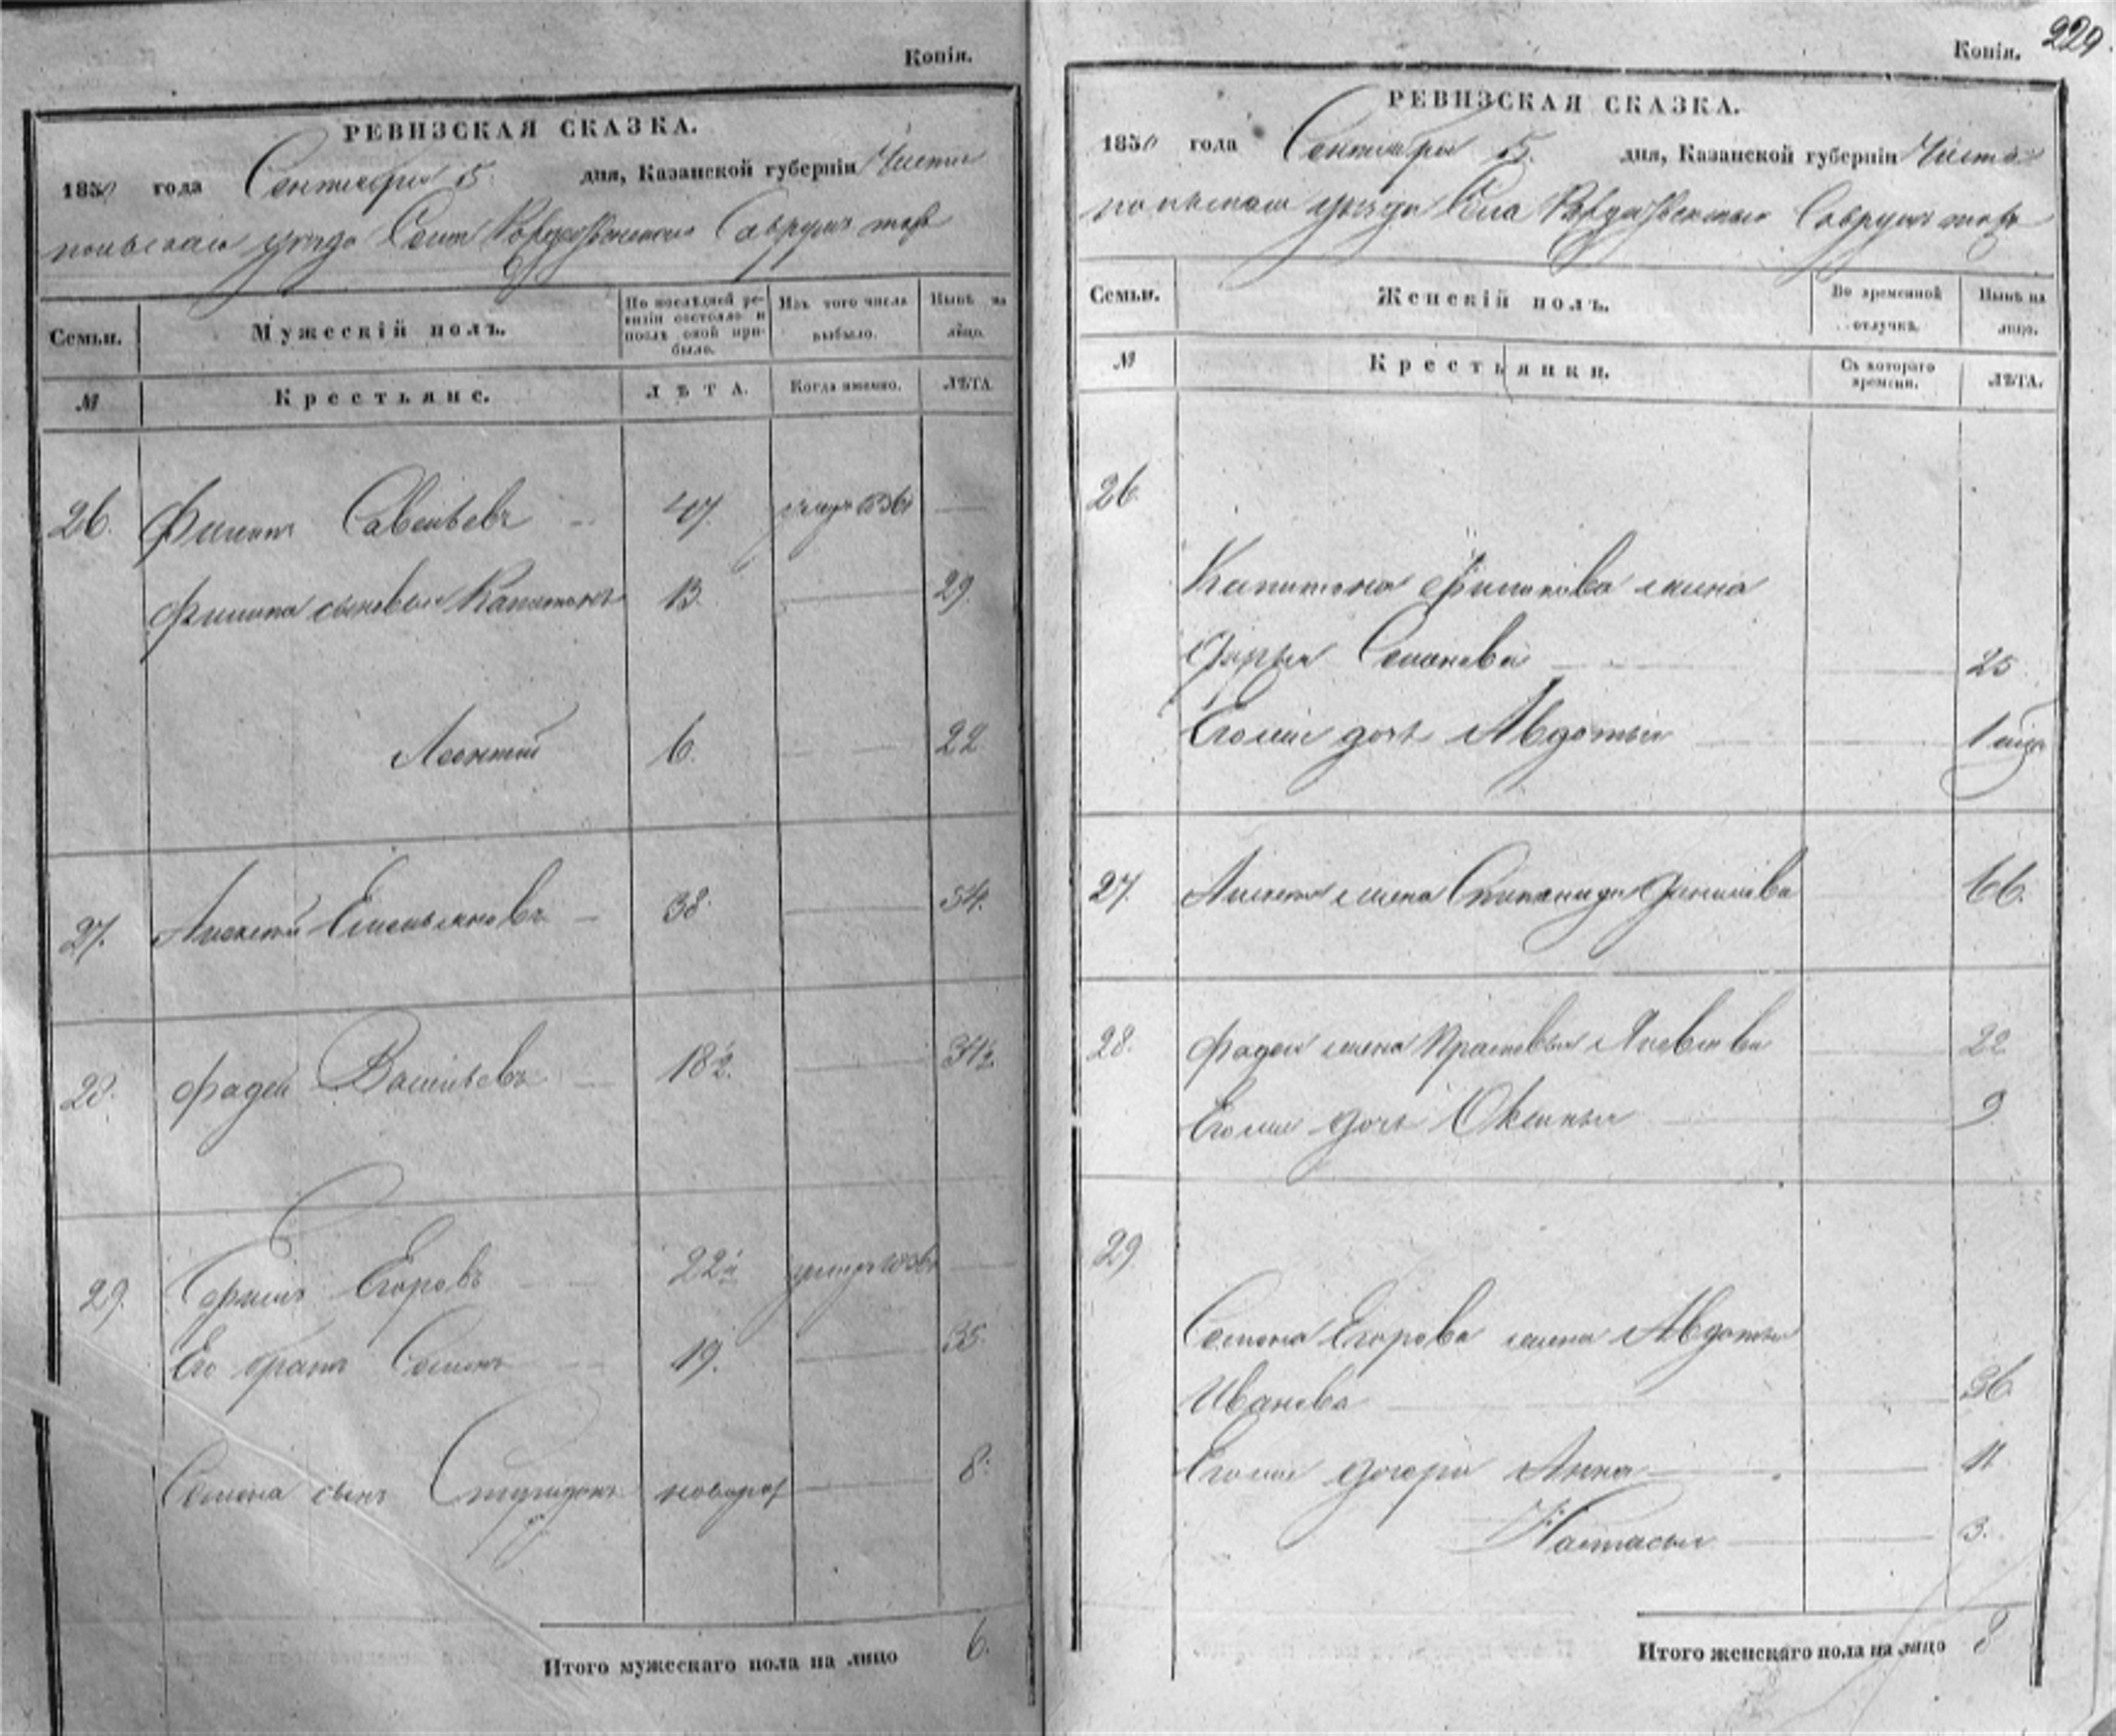 Копія.
РЕВИЗСКАЯ СКАЗКА.
1850 года Сентября 5 дня, Казанской губерніи Чисто
польскаго уѣзда Села Рождественскаго Саврушъ тожъ
Семьи.
Мужескій полъ.
По послѣдней ре-
визіи состояло и
послѣ оной при-
было.
Изъ того числа
выбыло.
Нынѣ на
лицо.
№
Крестьяне.
ЛѢТА.
Когда именно.
ЛѢТА
26. Филипъ Савельевъ 47.
Филипа сыновья Капитонъ 13. 29.
Леонтій 6. 22
27. Алексѣй Емельяновъ 38. 54.
28. Фадей Васильевъ 18½. 34½
29. Ефимъ Егоровъ 22
Его братъ Семенъ 19. 35.
Семена сынъ Спиридонъ новорож 8.
Итого мужескаго пола на лицо 6.
229.
Копія.
РЕВИЗСКАЯ СКАЗКА.
1850 года Сентября 5. дня, Казанской губерніи Чисто
польскаго уѣзда Села Рождественскаго Саврушъ тожъ
Семьи.
Женскій полъ.
Во временной
отлучкѣ.
Нынѣ на
лицо.
№
Крестьянки.
Съ котораго
времени.
ЛѢТА.
26.
Капитона Филипова жена
Дарья Семенова 25
Его же дочь Авдотья 1
27. Алексѣя жена Степанида Данилова 66.
28. Фадея жена Прасковья Яковлева 22
Его же дочь Оксинья 9
29
Семена Егорова жена Авдотья
Иванова 36.
Его же дочери Анна 11
Настасья 3.
Итого женскаго пола на лицо 8